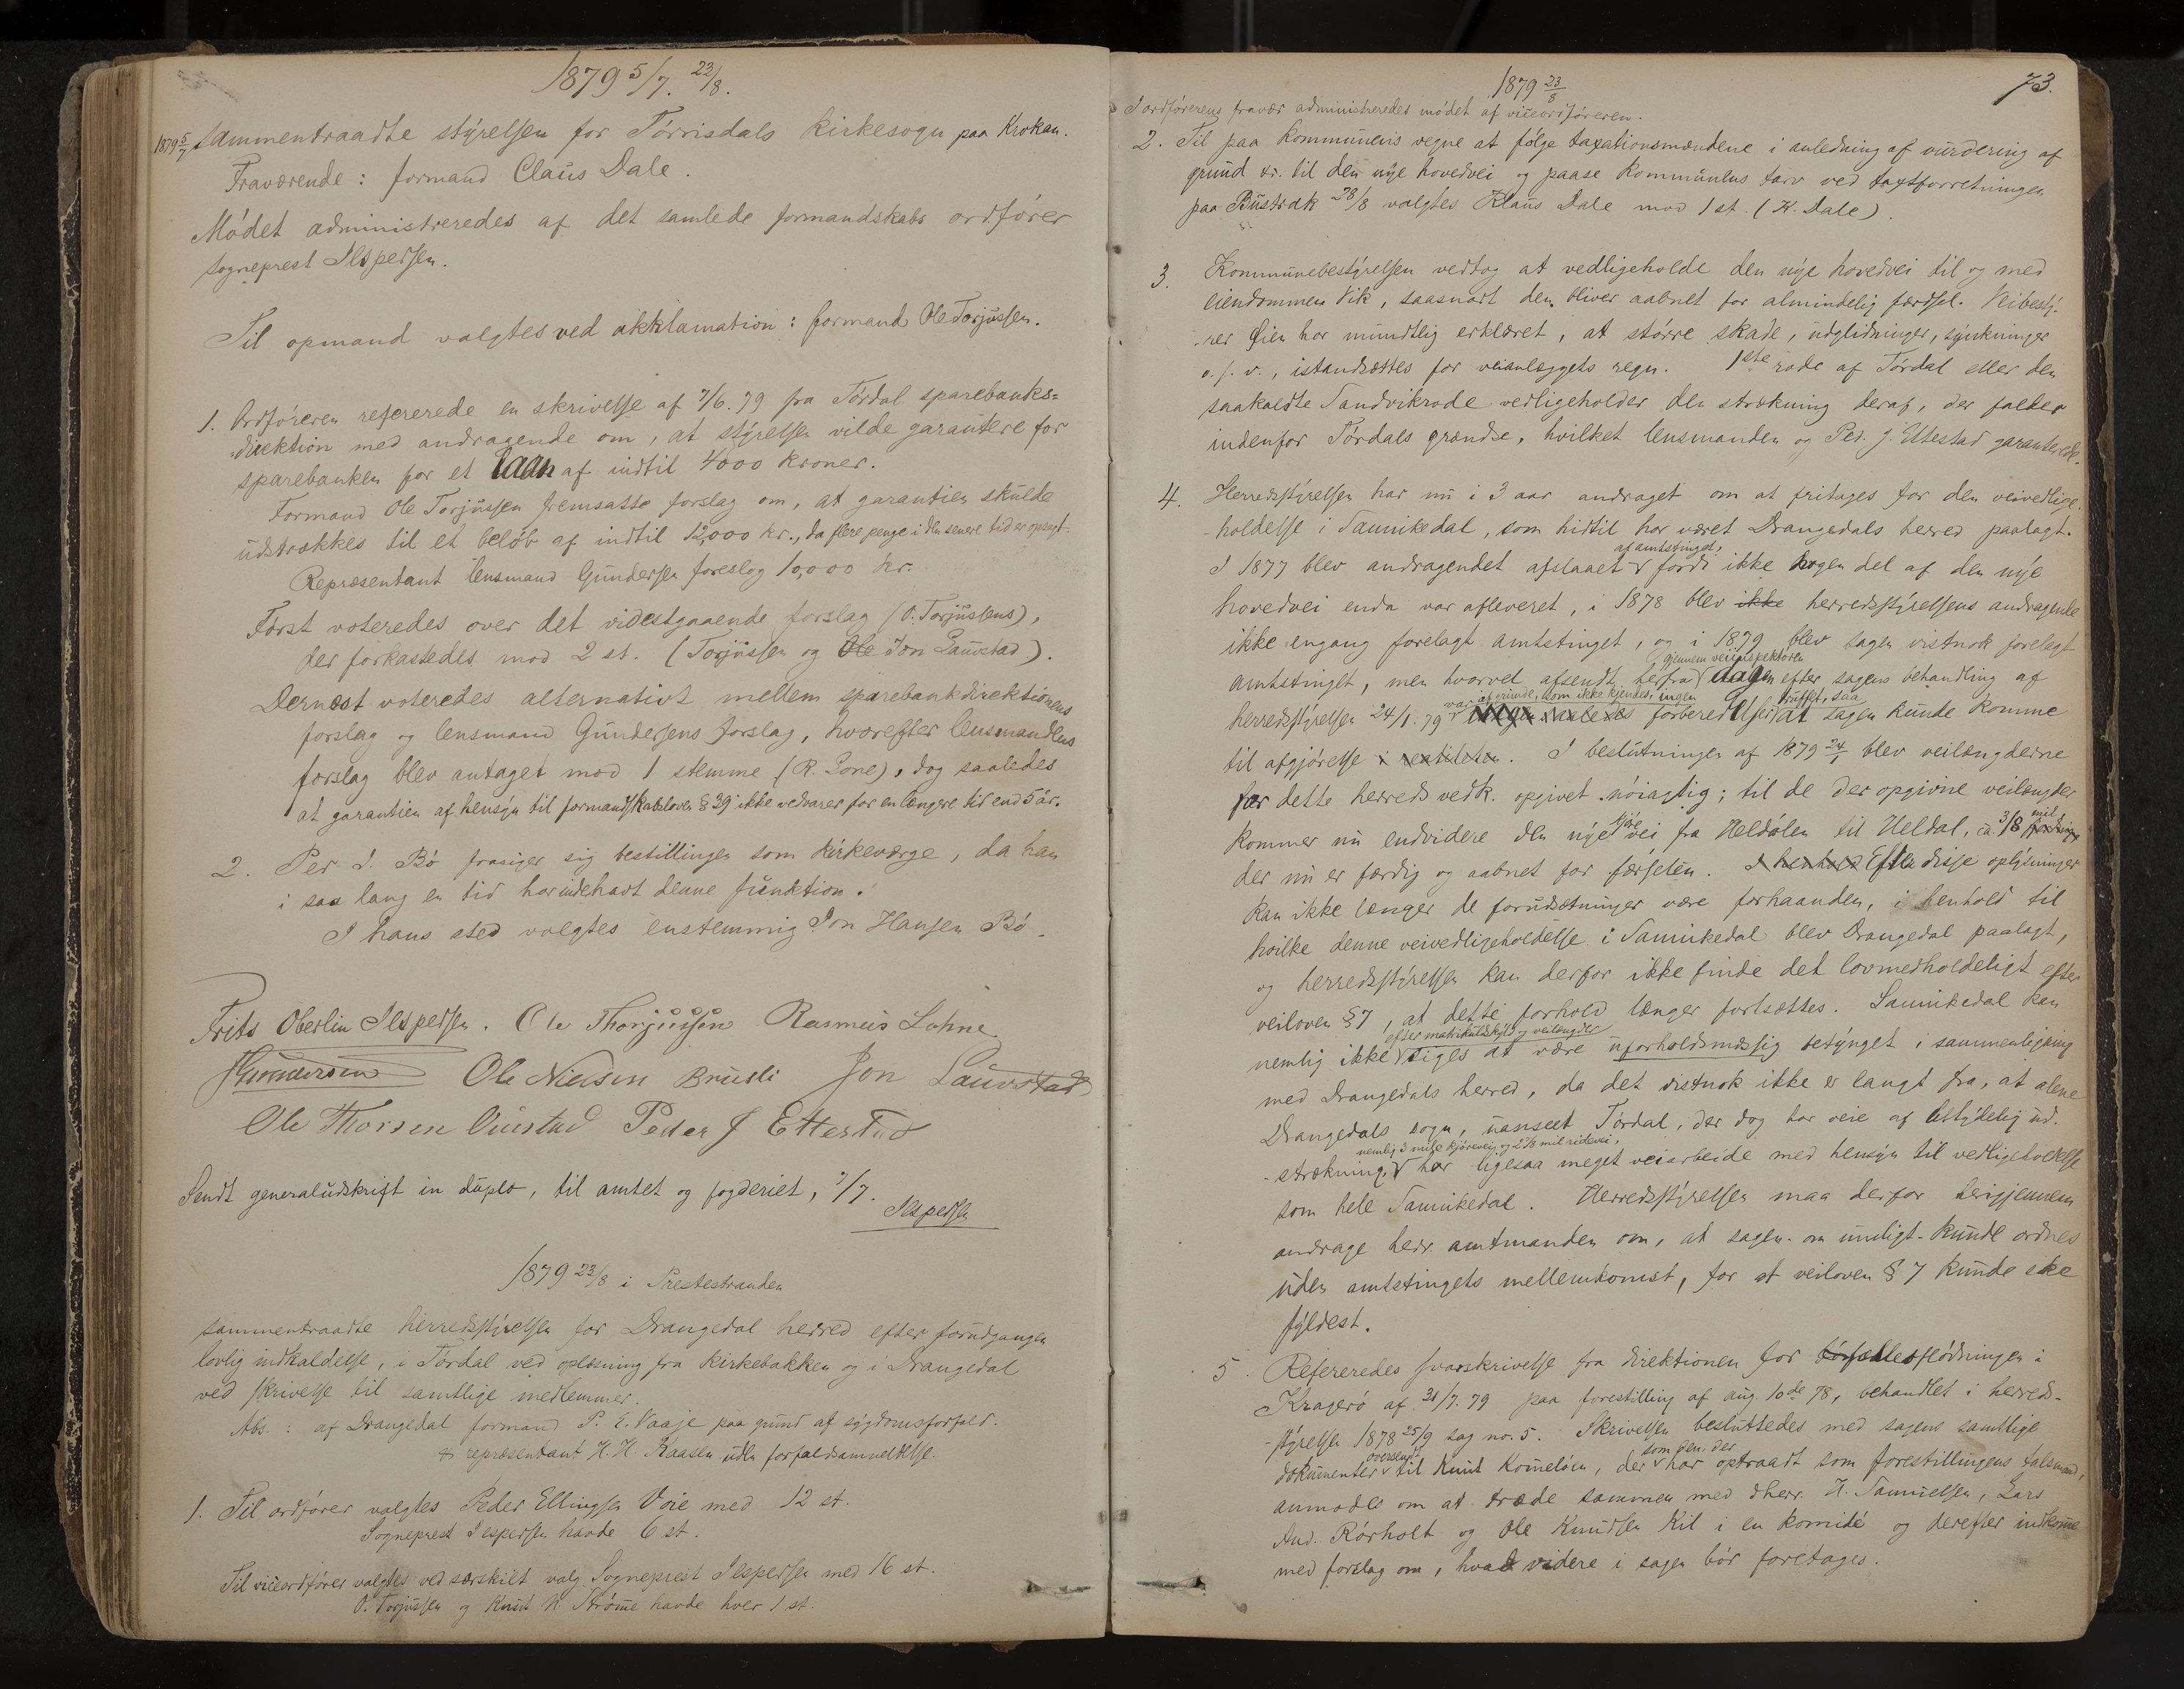 1879 5/7. 23/8.
1879 5/7 sammentraadte stýrelsen for Törrisdals kirkesogn paa Krokan.
Fraværende: formand Claus Dale.
Mödet administreredes af det samlede formandskabs ordförer
sogneprest Jespersen.
Til opmand valgtes ved akklamation: formand Ole Torjussen.
1. Ordföreren refererede en skrivelse af 7/6. 79 fra Tördal sparebanks=
direktion med andragende om, at stýrelsen vilde garantere for
sparebanken for et laan af indtil 4000 kroner.
Formand Ole Torjussen fremsatte forslag om, at garantien skulde
udstrækkes til et belöb af indtil 12,000 kr., da flere penge i den senere tid er opsagt.
Repræsentant lensmand Gundersen foreslog 10,000 kr.
Först voteredes over det videstgaaende forslag (O. Torjussens),
der forkastedes mod 2 st. (Torjussen og Ole Jon Lauvstad).
Dernæst voteredes alternativt mellem sparebankdirektionens
forslag og lensmand Gundersens forslag, hvorefter lensmandens
forslag blev antaget mod 1 stemme (R. Lone), dog saaledes
at garantien af hensýn til formandskabsloven § 39 ikke vedvarer for en længere tid end 5 år.
2. Per J. Bö frasiger sig bestillingen som kirkeværge, da han
i saa lang en tid har indehavt denne funktion.
I hans sted valgtes enstemmig Jon Hansen Bö.
Frits Oberlin Jespersen. Ole Thorjussen Rasmus Lohne
Gundersen Ole Nielsen Brusli Jon Lauvstad
Ole Thorsen Peder J Ettestad
Sendt generaludskrift in duplo, til amtet og fogderiet, 7/7.
Jespersen
1879 23/8 i Prestestranden
sammentraadte herredsstýrelsen for Drangedal herred efter forudgangen
lovlig indkaldelse, i Tördal ved oplæsning fra kirkebakken og i Drangedal
ved skrivelse til samtlige medlemmer.
Abs.: af Drangedal formand P. E. Vaaje paa grund af sýgdomsforfald.
& repræsentant H. H. Kaasen uden forfaldsanmeldelse.
1. Til ordförer valgtes Peder Ellingsen Voie med 12 st.
Sogneprest Jespersen havde 6 st.
Til viceordförer valgtes ved særskilt valg Sogneprest Jespersen med 16 st.
O. Torjussen og Knut N. Strömme havde hver 1 st.
1879 23/8
73.
I ordförerens fravær administreredes mödet af viceordföreren.
2. Til paa kommunens vegne at fölge taxationsmændene i anledning af vurdering af
grund &. til den nýe hovedvei og paase kommunens tarv ved taxtforretningen
paa Bustrak 28/8 valgtes Klaus Dale mod 1 st. (K. Dale).
3. Kommunebestýrelsen vedtog at vedligeholde den nýe hovedvei til og med
eiendommen Vik, saasnart den bliver aabnet for almindelig færdsel. Veibestý-
-rer Öien har mundtlig erklæret, at större skade, udglidninger, sýnkninger
o. s. v., istandsættes for veianlæggets regn. 1ste rode af Tördal eller den
saakaldte Sandvikrode vedligeholder den strækning deraf, der falder
indenfor Tördals grændse, hvilket lensmanden og Ped. J. Ettestad garanterede.
4. Herredsstýrelsen har nu i 3 aar andraget om at fritages for den veivedlige-
-holdelse i Sannikedal, som hidtil har været Drangedals herred paalagt.
af amtstinget,
I 1877 blev andragendet afslaaet fordi ikke nogen del af den nýe
hovedvei enda var afleveret, i 1878 blev ikke herredsstýrelsens andragende
ikke engang forelagt amtstinget, og i 1879 blev sagen vistnok forelagt
gjennem veiinspektören
amtstinget, men hvorvel afsendt herfra dagen efter sagens behandling af
var af grunde, som ikke kjendes, ingen truffet, saa
herredsstýrelsen 24/1. 79 forberedelser at sagen kunde komme
til afgjörelse. I beslutningen af 1879 24/1 blev veilængderne
for dette herreds vedk. opgivet nöiagtig; til de der opgivne veilængder
kjöre mil
kommer nu endvidere den nýe vei fra Heldölen til Heldal, ca. 3/8
der nu er færdig og aabnet for færselen. I henhold Efter disse oplýsninger
kan ikke længer de forudsætninger være forhaanden, i henhold til
hvilke denne veivedligeholdelse i Sannikedal blev Drangedal paalagt,
og herredsstýrelsen kan derfor ikke finde det lovmedholdeligt efter
veiloven § 7, at dette forhold længer fortsættes. Sannikedal kan
efter matrikulskyld og veilængder
nemlig ikke siges at være uforholdsmæssig betýnget i sammenligning
med Drangedals herred, da det vistnok ikke er langt fra, at alene
Drangedals sogn, uanseet Tördal, der dog har veie af betýdelig ud-
nemlig 3 mile kjörevei og 2 7/8 mil ridevei,
-strækning, har ligesaa meget veiarbeide med hensýn til vedligeholdelse
som hele Sannikedal. Herredsstýrelsen maa derfor herigjennem
andrage herr amtmanden om, at sagen - om muligt - kunde ordnes
uden amtstingets mellemkomst, for at veiloven § 7 kunde ske
fýldest.
5. Refereredes svarskrivelse fra direktionen for fællesflödningen i
Kragerö af 31/7. 79 paa forestilling af aug. 10de 78, behandlet i herreds-
-stýrelsen 1878 25/9 sag no. 5. Skrivelsen besluttedes med sagens samtlige
oversendt som den, der
dokumenter til Knut, der har optraadt som forestillingens talsmand,
anmodes om at træde sammen med dherr. H. Samuelsen, Lars
And. Rörholt og Ole Knudsen Kil i en komité og derefter indkomme
med forslag om, hvad videre i sagen bör foretages.